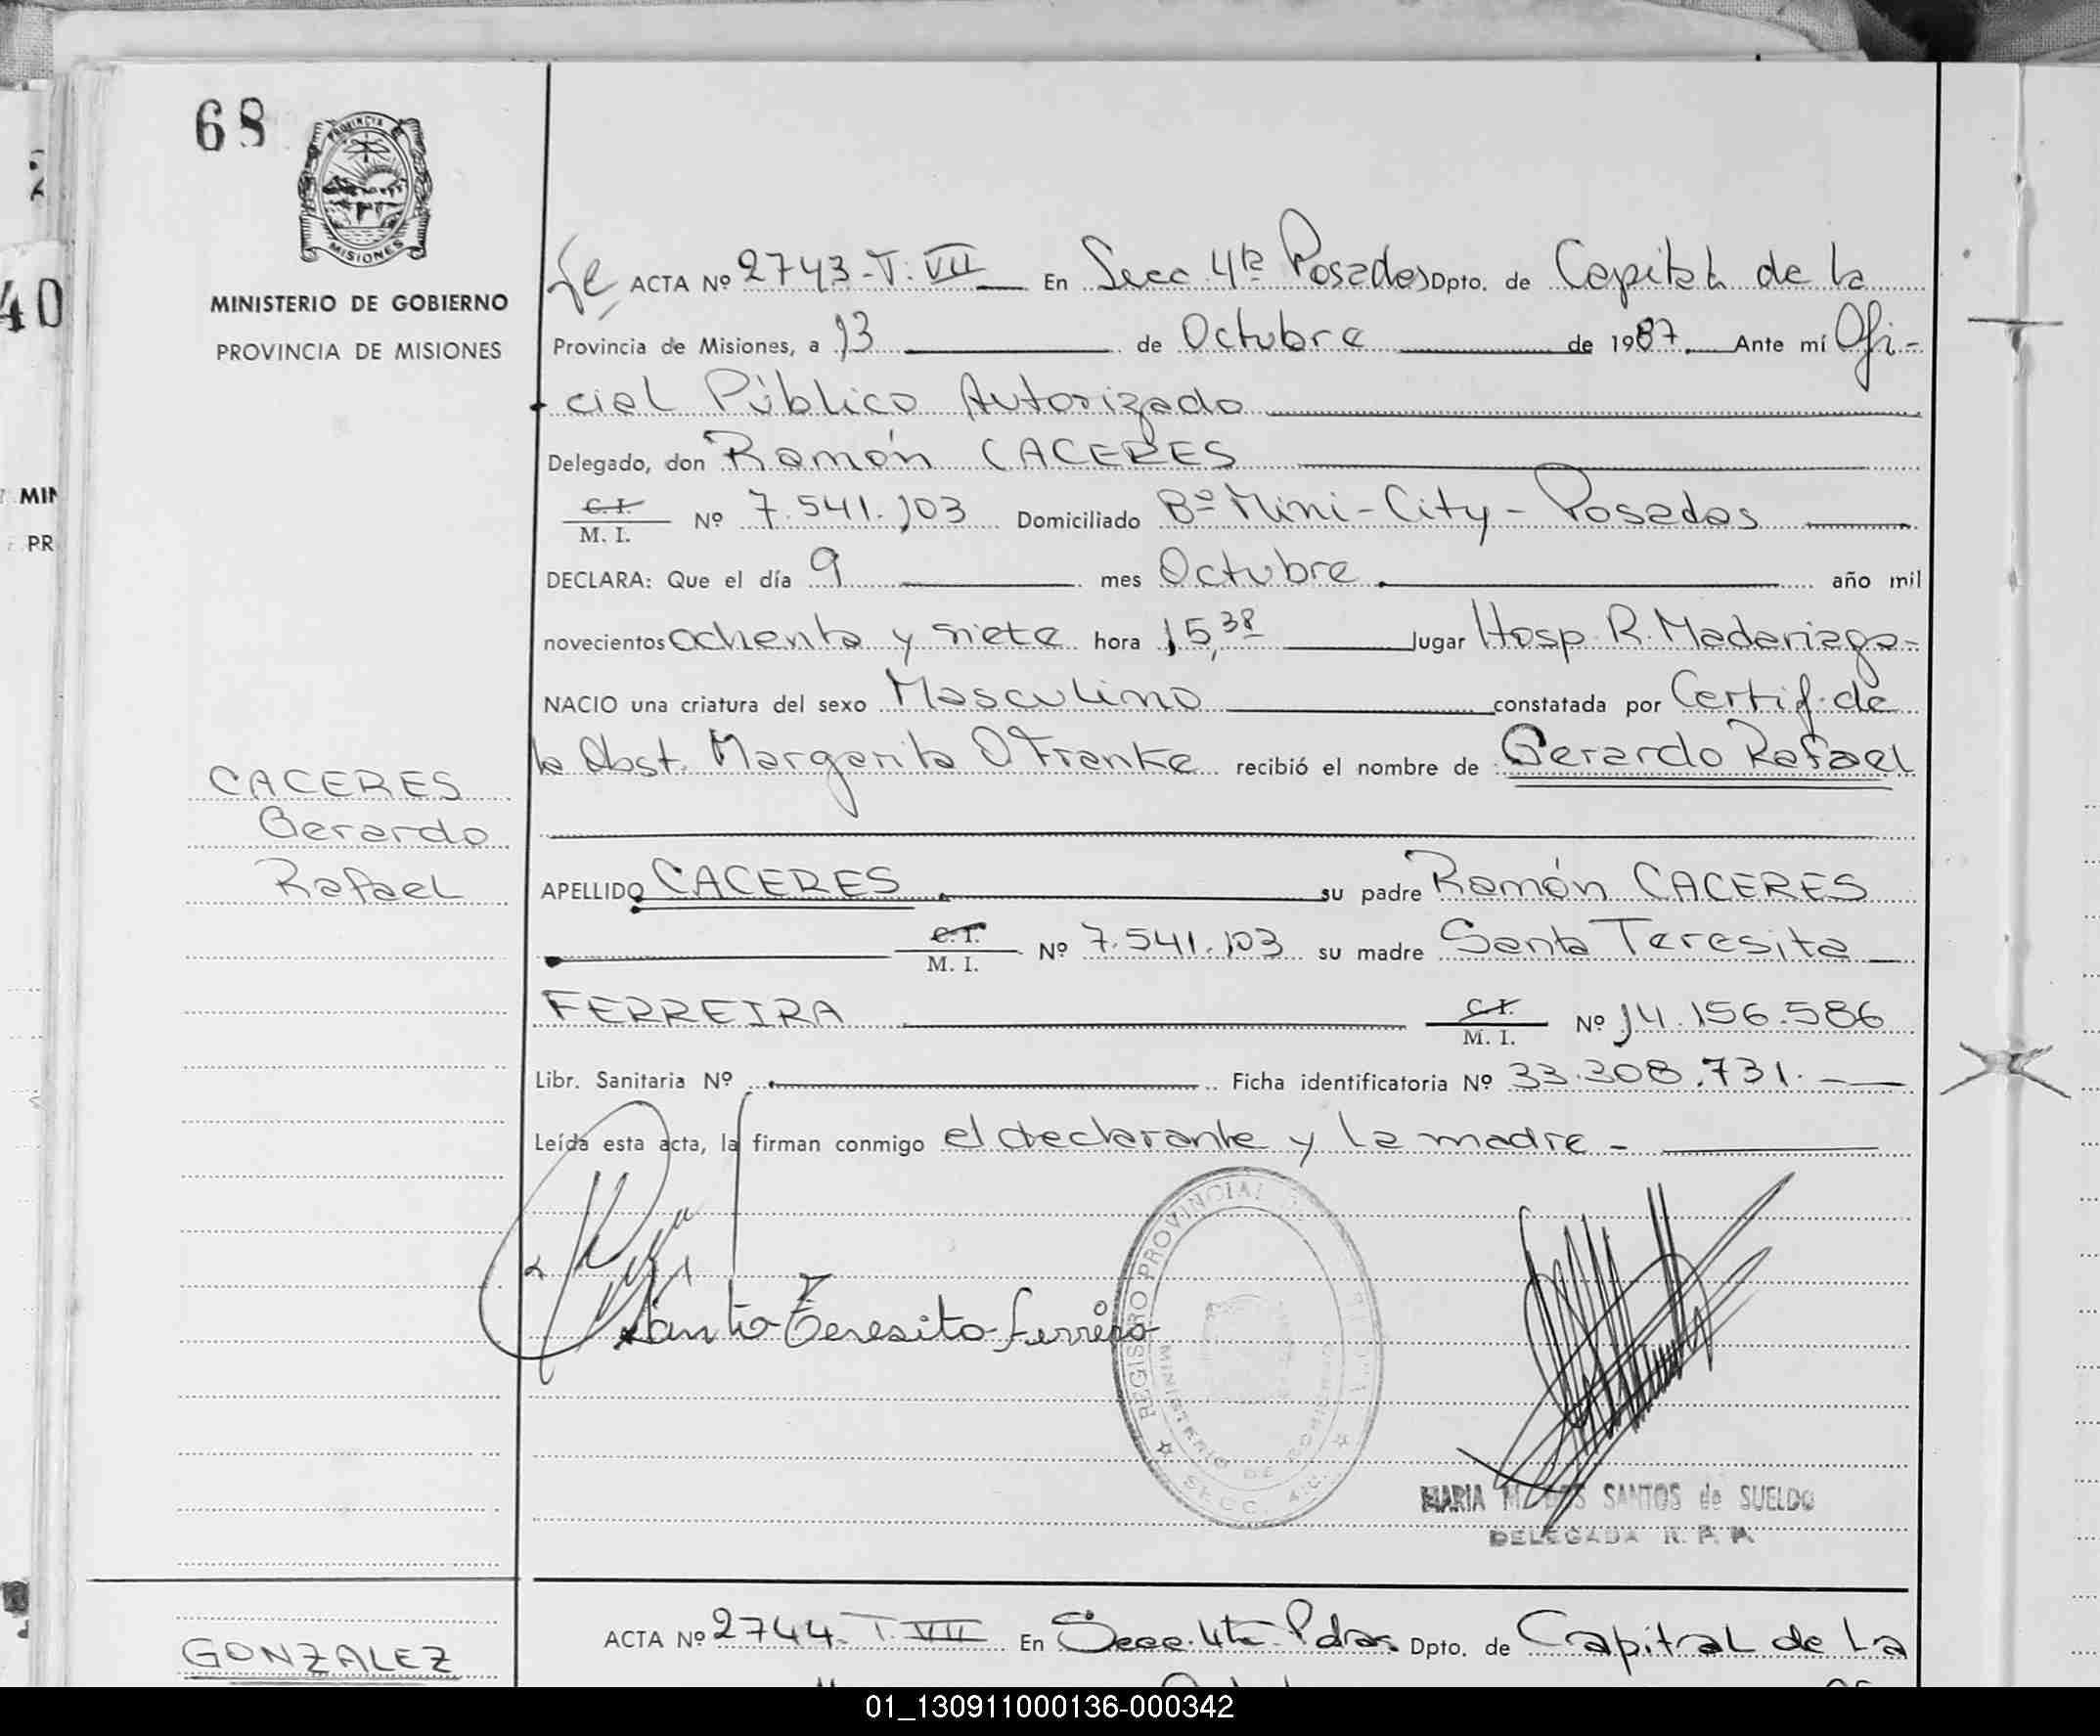 68
PROVINCIA
MISIONES
MINISTERIO DE GOBIERNO
PROVINCIA DE MISIONES
ACTA Nº 2743-T. VII En Secc. 4ta Posadas Dpto. de Capital de la
Provincia de Misiones, a 13 de Octubre de 1987. Ante mí Ofi-
cial Público Autorizado
Delegado, don Ramón CACERES
C. I.
M. I. Nº 7.541.103 Domiciliado Bº Mini-City - Posadas
DECLARA: Que el día 9 mes Octubre año mil
novecientos ochenta y siete hora 15,38 lugar Hosp. R. Madariaga-
NACIO una criatura del sexo Masculino constatada por Certif. de
la Obst. Margarita O Franke recibió el nombre de Gerardo Rafael
CACERES
Gerardo
Rafael
APELLIDO CACERES su padre Ramón CACERES
C. I.
M. I. Nº 7.541.103 su madre Santa Teresita
FERREIRA C. I.
M. I. Nº 14.156.586
Libr. Sanitaria Nº Ficha identificatoria Nº 33.308.731.
Leída esta acta, la firman conmigo el declarante y la madre -
Santa Teresita Ferreira
REGISTRO PROVINCIAL
MINISTERIO DE GOBIERNO
SECC. 4
MARIA M. DOS SANTOS de SUELDO
DELEGADA R. P. P.
ACTA Nº 2744- T. VII En Secc. 4ta Pdas. Dpto. de Capital de La
GONZALEZ
40
MIN
PR
01_130911000136-000342